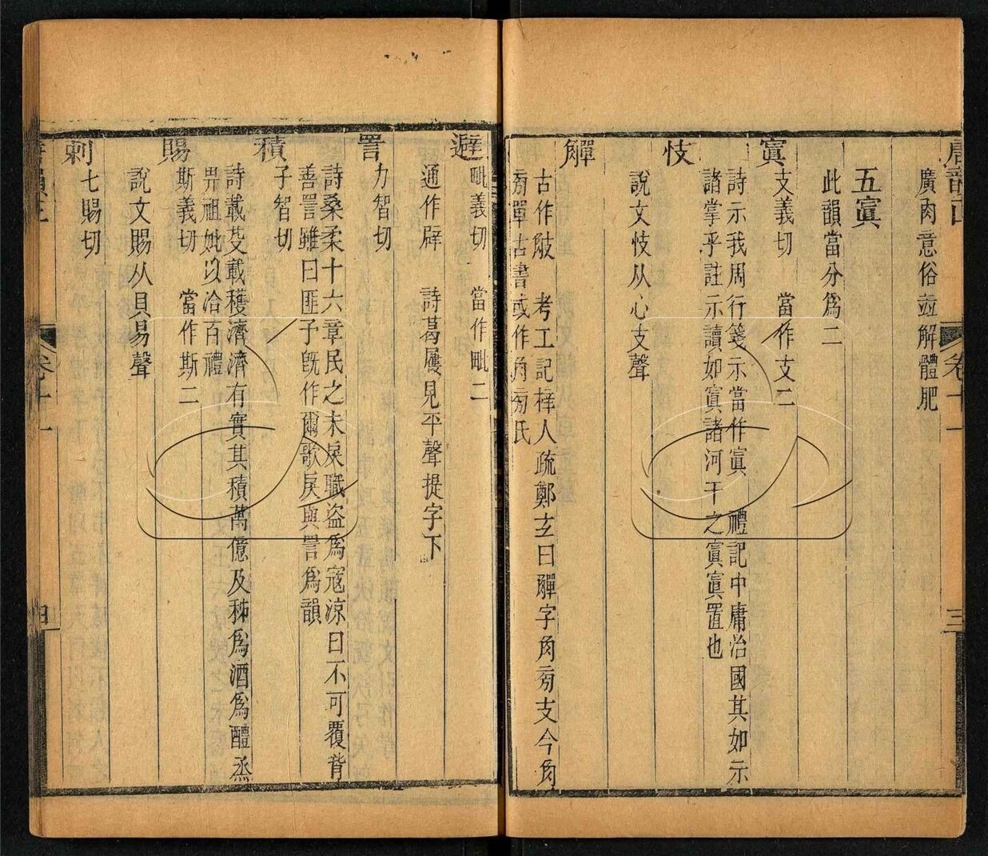 唐韻正 卷十一 三
廣肉意俗竝解體肥
五寘
此韻當分為二
寘
支義切 當作支二
詩示我周行箋示當作寘 禮記中庸治國其如示
諸掌乎註示讀如寘諸河干之寘寘置也
忮
說文忮从心支聲
觶
古作䏢 考工記梓人疏鄭玄曰觶字角旁支今角
旁單古書或作角旁氏
避
毗義切 當作毗二
通作辟 詩葛屨見平聲提字下
詈
力智切
詩桑柔十六章民之未戾職盜為寇涼曰不可覆背
善詈雖曰匪予旣作爾歌戾與詈為韻
積
子智切
詩載芟載穫濟濟有實其積萬億及秭為酒為醴烝
畀祖妣以洽百禮
賜
斯義切 當作斯二
說文賜从貝易聲
刺
七賜切
卷十一 四